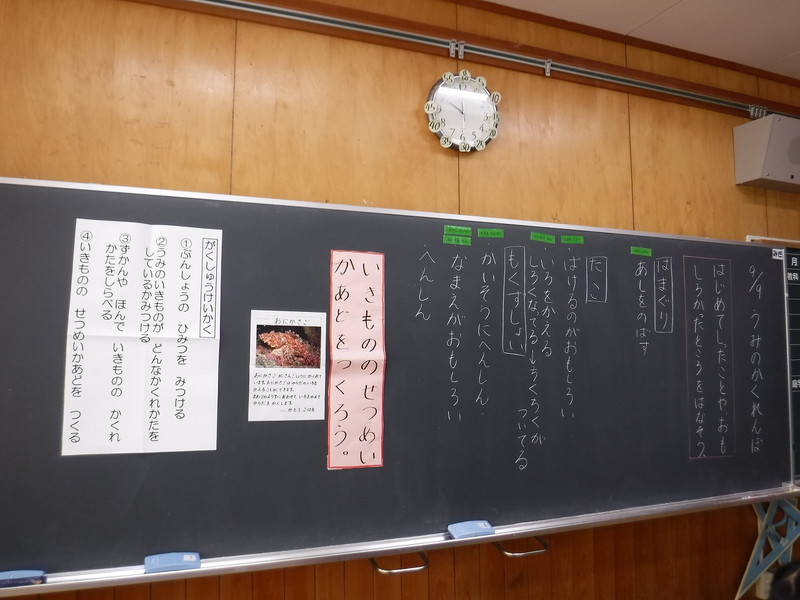 9/9 うみのかくれんぼ
はじめてしったことやおも
しろかったところをはなそう。
はまぐり
あしをのばす
たこ
ばけるのがおもしろい
いろをかえる
しろくなってる しもくろくが
ついてる
もくずしょい
かいそうにへんしん
なまえがおもしろい
へんしん
いきもののせつめい
かあどをつくろう。
おにかさご
がくしゅうけいかく
①ぶんしょうの ひみつを みつける
②うみのいきものが どんなかくれかたを
しているかみつける
③ずかんや ほんで いきものの かくれ
かたをしらべる
④いきものの せつめいかあどを つくる